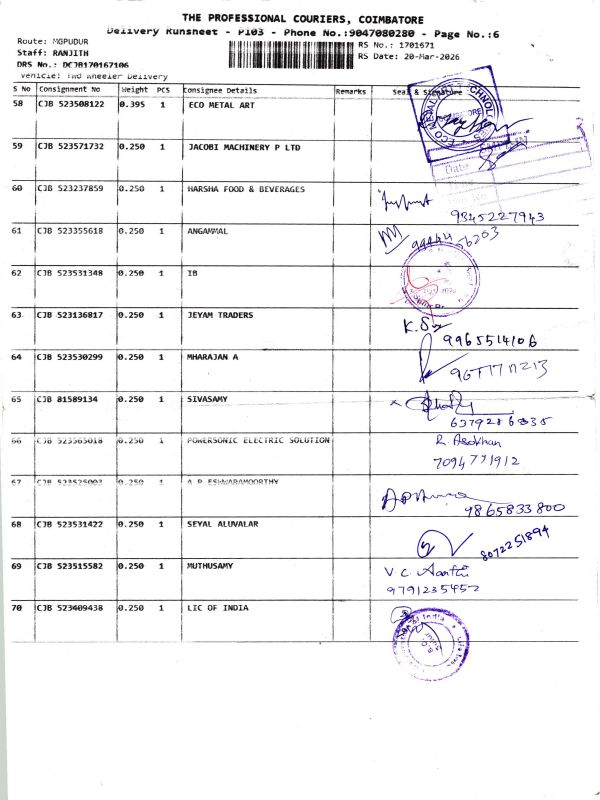 THE PROFESSIONAL COURIERS, COIMBATORE
Delivery Runsheet - P103 - Phone No.:9047080280 - Page No.:6
Route: MGPUDUR
RS No.: 1701671
Staff: RANJITH
RS Date: 20-Mar-2026
DRS No.: DCJB170167106
Vehicle: Two Wheeler Delivery
S No Consignment No Weight PCS Consignee Details Remarks Seal & Signature
58 CJB 523508122 0.395 1 ECO METAL ART
59 CJB 523571732 0.250 1 JACOBI MACHINERY P LTD
Date
60 CJB 523237859 0.250 1 HARSHA FOOD & BEVERAGES
9345227943
61 CJB 523355618 0.250 1 ANGAMMAL
62 CJB 523531348 0.250 1 IB
63 CJB 523136817 0.250 1 JEYAM TRADERS
9965514106
64 CJB 523530299 0.250 1 MHARAJAN A
65 CJB 81589134 0.250 1 SIVASAMY
66 CJB 523565018 0.250 1 POWERSONIC ELECTRIC SOLUTION
R. Asokhan
7094771912
67 CJB 523525003 0.250 1 A P ESHWARAMOORTHY
9865833800
68 CJB 523531422 0.250 1 SEYAL ALUVALAR
8072251894
69 CJB 523515582 0.250 1 MUTHUSAMY
V C Aarthi
9791235452
70 CJB 523409438 0.250 1 LIC OF INDIA